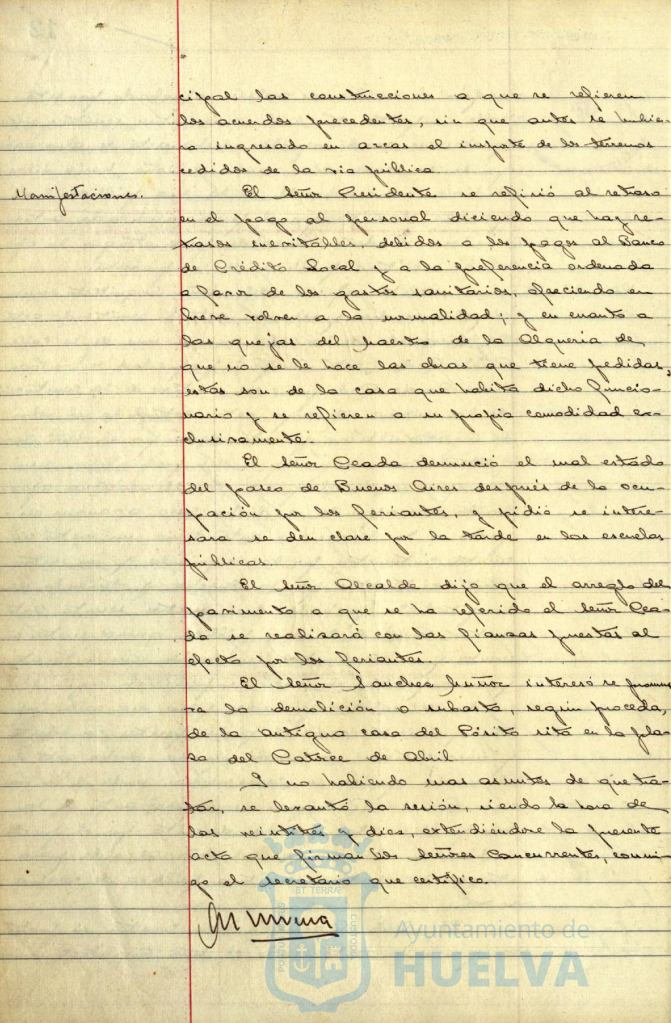 cipal las construcciones a que se refieren
los acuerdos precedentes, sin que antes se hubie-
ra ingresado en arcas el importe de los terrenos
cedidos de la via pública.
Manifestaciones.
El Señor Presidente se refirió al retraso
en el pago al personal diciendo que hay re-
trasos inevitables, debidos a los pagos al Banco
de Crédito Local y a la preferencia ordenada
a favor de los gastos sanitarios, ofreciendo en
breve volver a la normalidad; y en cuanto a
las quejas del maestro de la Alqueria de
que no se le hace las obras que tiene pedidas,
estas son de la casa que habita dicho funcio-
nario y se refieren a su propia comodidad ex-
clusivamente.
El Señor Ceada denunció el mal estado
del paseo de Buenos Aires después de la ocu-
pación por los feriantes, y pidió se intere-
sara se den clase por la tarde en las escuelas
públicas.
El Señor Alcalde dijo que el arreglo del
pavimento a que se ha referido el Señor Cea-
da se realizará con las fianzas puestas al
efecto por los feriantes.
El Señor Sanchez Muñoz interesó se promue
va la demolición o subasta, según proceda,
de la antigua casa del Pósito sita en la pla-
za del Catorce de Abril
Y no habiendo mas asuntos de que tra-
tar, se levantó la sesión, siendo la hora de
las veintitrés y diez, extendiéndose la presente
acta que firman los Señores Concurrentes, conmi-
go el secretario que certifico.
Ayuntamiento de
HUELVA